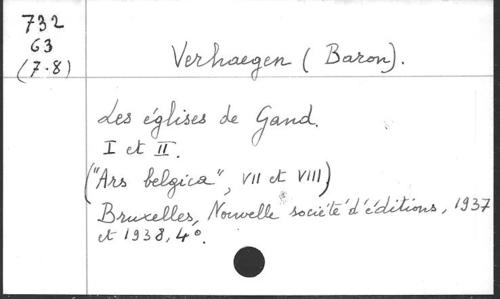 732
63
(7.8)
Verhaegen (Baron).
Les églises de Gand.
I et II.
("Ars belgica", VII et VIII)
Bruxelles, Nouvelle société d'éditions, 1937
et 1938, 4°.